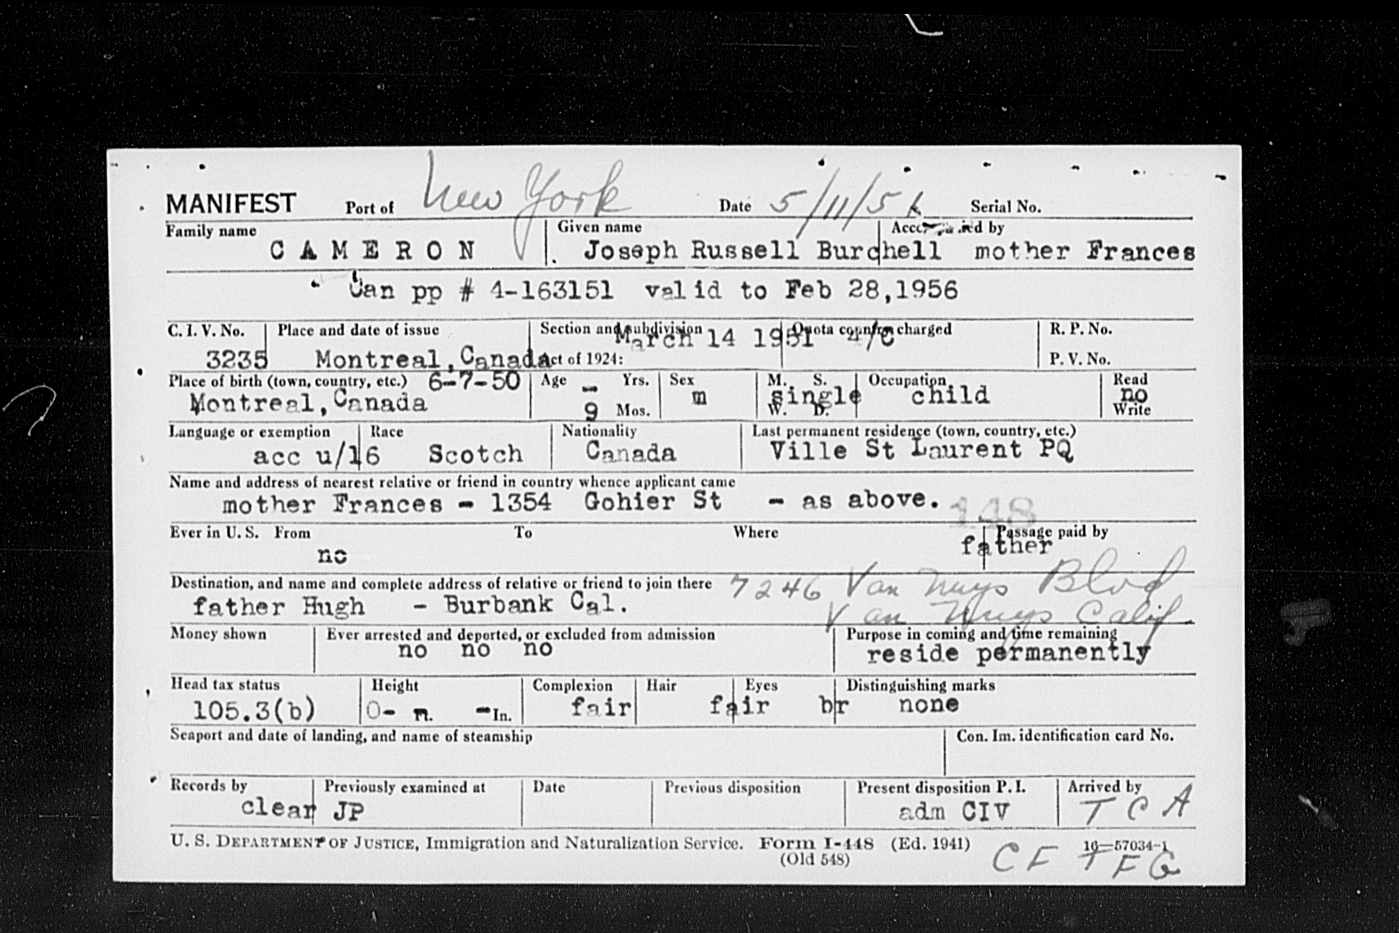 MANIFEST Port of New York Date 5/11/51 Serial No.
Family name Given name Accompanied by
CAMERON Joseph Russell Burchell mother Frances
Can pp # 4-163151 valid to Feb 28,1956
C. I. V. No. Place and date of issue Section and subdivision Quota country charged R. P. No.
March 14 1951 4/C
3235 Montreal,Canada Act of 1924: P. V. No.
Place of birth (town, country, etc.) 6-7-50 Age - Yrs. Sex M. S. Occupation Read
Montreal,Canada 9 Mos. m single child no
W. D. Write
Language or exemption Race Nationality Last permanent residence (town, country, etc.)
acc u/16 Scotch Canada Ville St Laurent PQ
Name and address of nearest relative or friend in country whence applicant came
mother Frances - 1354 Gohier St - as above.
448
Ever in U. S. From To Where Passage paid by
no father
Destination, and name and complete address of relative or friend to join there 7246 Van Nuys Blvd
father Hugh - Burbank Cal. Van Nuys Calif.
Money shown Ever arrested and deported, or excluded from admission Purpose in coming and time remaining
no no no reside permanently
Head tax status Height Complexion Hair Eyes Distinguishing marks
105.3(b) 0- - In. fair fair br none
Seaport and date of landing, and name of steamship Con. Im. identification card No.
Records by Previously examined at Date Previous disposition Present disposition P. I. Arrived by
clear JP adm CIV TCA
U. S. DEPARTMENT OF JUSTICE, Immigration and Naturalization Service. Form I-448 (Ed. 1941) 16—57034-1
(Old 548) CF TFG